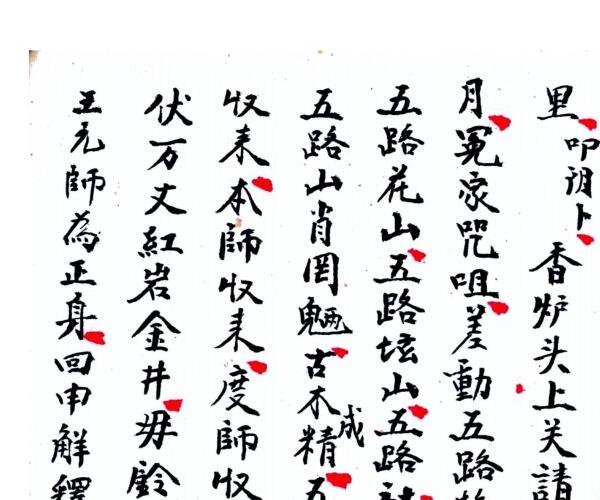 里叩阴卜香炉头上关請
月冤家咒咀差動五路
五路花山五路坛山五路
五路山肖罔魉古木成精五
收来本師收来度師收
伏一万丈紅岩金井毋鈴
王元師為正身回申解釋